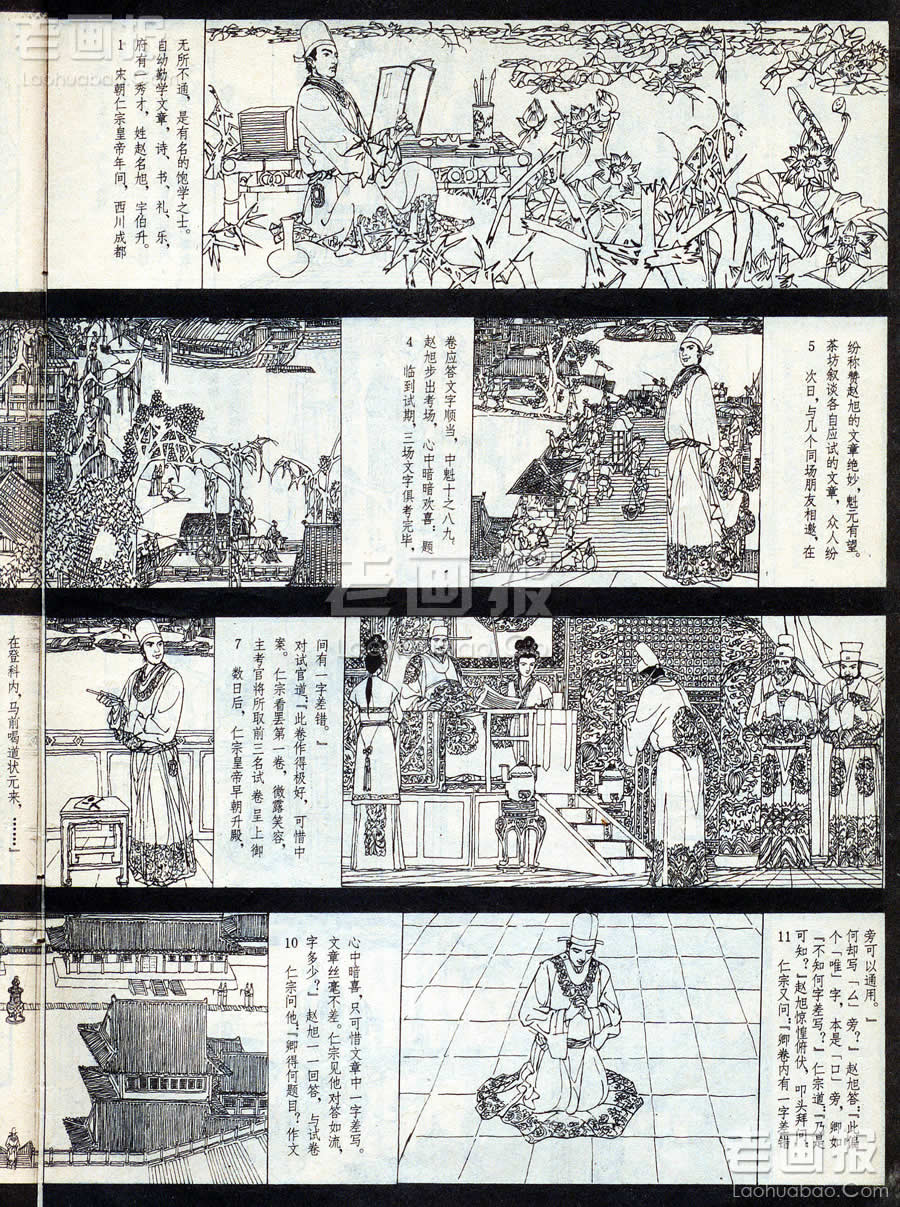 老画报
Laohuabao.Com
1 宋朝仁宗皇帝年间，西川成都
府有一秀才，姓赵名旭，字伯升。
自幼勤学文章，诗、书、礼、乐，
无所不通，是有名的饱学之士。
4 临到试期，三场文字俱考完毕，
赵旭步出考场，心中暗暗欢喜：题
卷应答文字顺当，中魁十之八九。
5 次日，与几个同场朋友相邀，在
茶坊叙谈各自应试的文章，众人纷
纷称赞赵旭的文章绝妙，魁元有望。
老画报
Laohuabao.Com
在登科内，马前喝道状元来，……』
7 数日后，仁宗皇帝早朝升殿，
主考官将所取前三名试卷呈上御
案。仁宗看罢第一卷，微露笑容，
对试官道：『此卷作得极好，可惜中
间有一字差错。』
10 仁宗问他：『卿得何题目？作文
字多少？』赵旭一一回答，与试卷
文章丝毫不差。仁宗见他对答如流，
心中暗喜，只可惜文章中一字差写。
11 仁宗又问：『卿卷内有一字差错，
可知？』赵旭惊惶俯伏，叩头拜
『不知何字差写？』仁宗道：『乃是
个「唯」字，本是「口」旁，卿如
何却写「厶」旁？』赵旭答：『此
旁可以通用。』
老画报
Laohuabao.Com